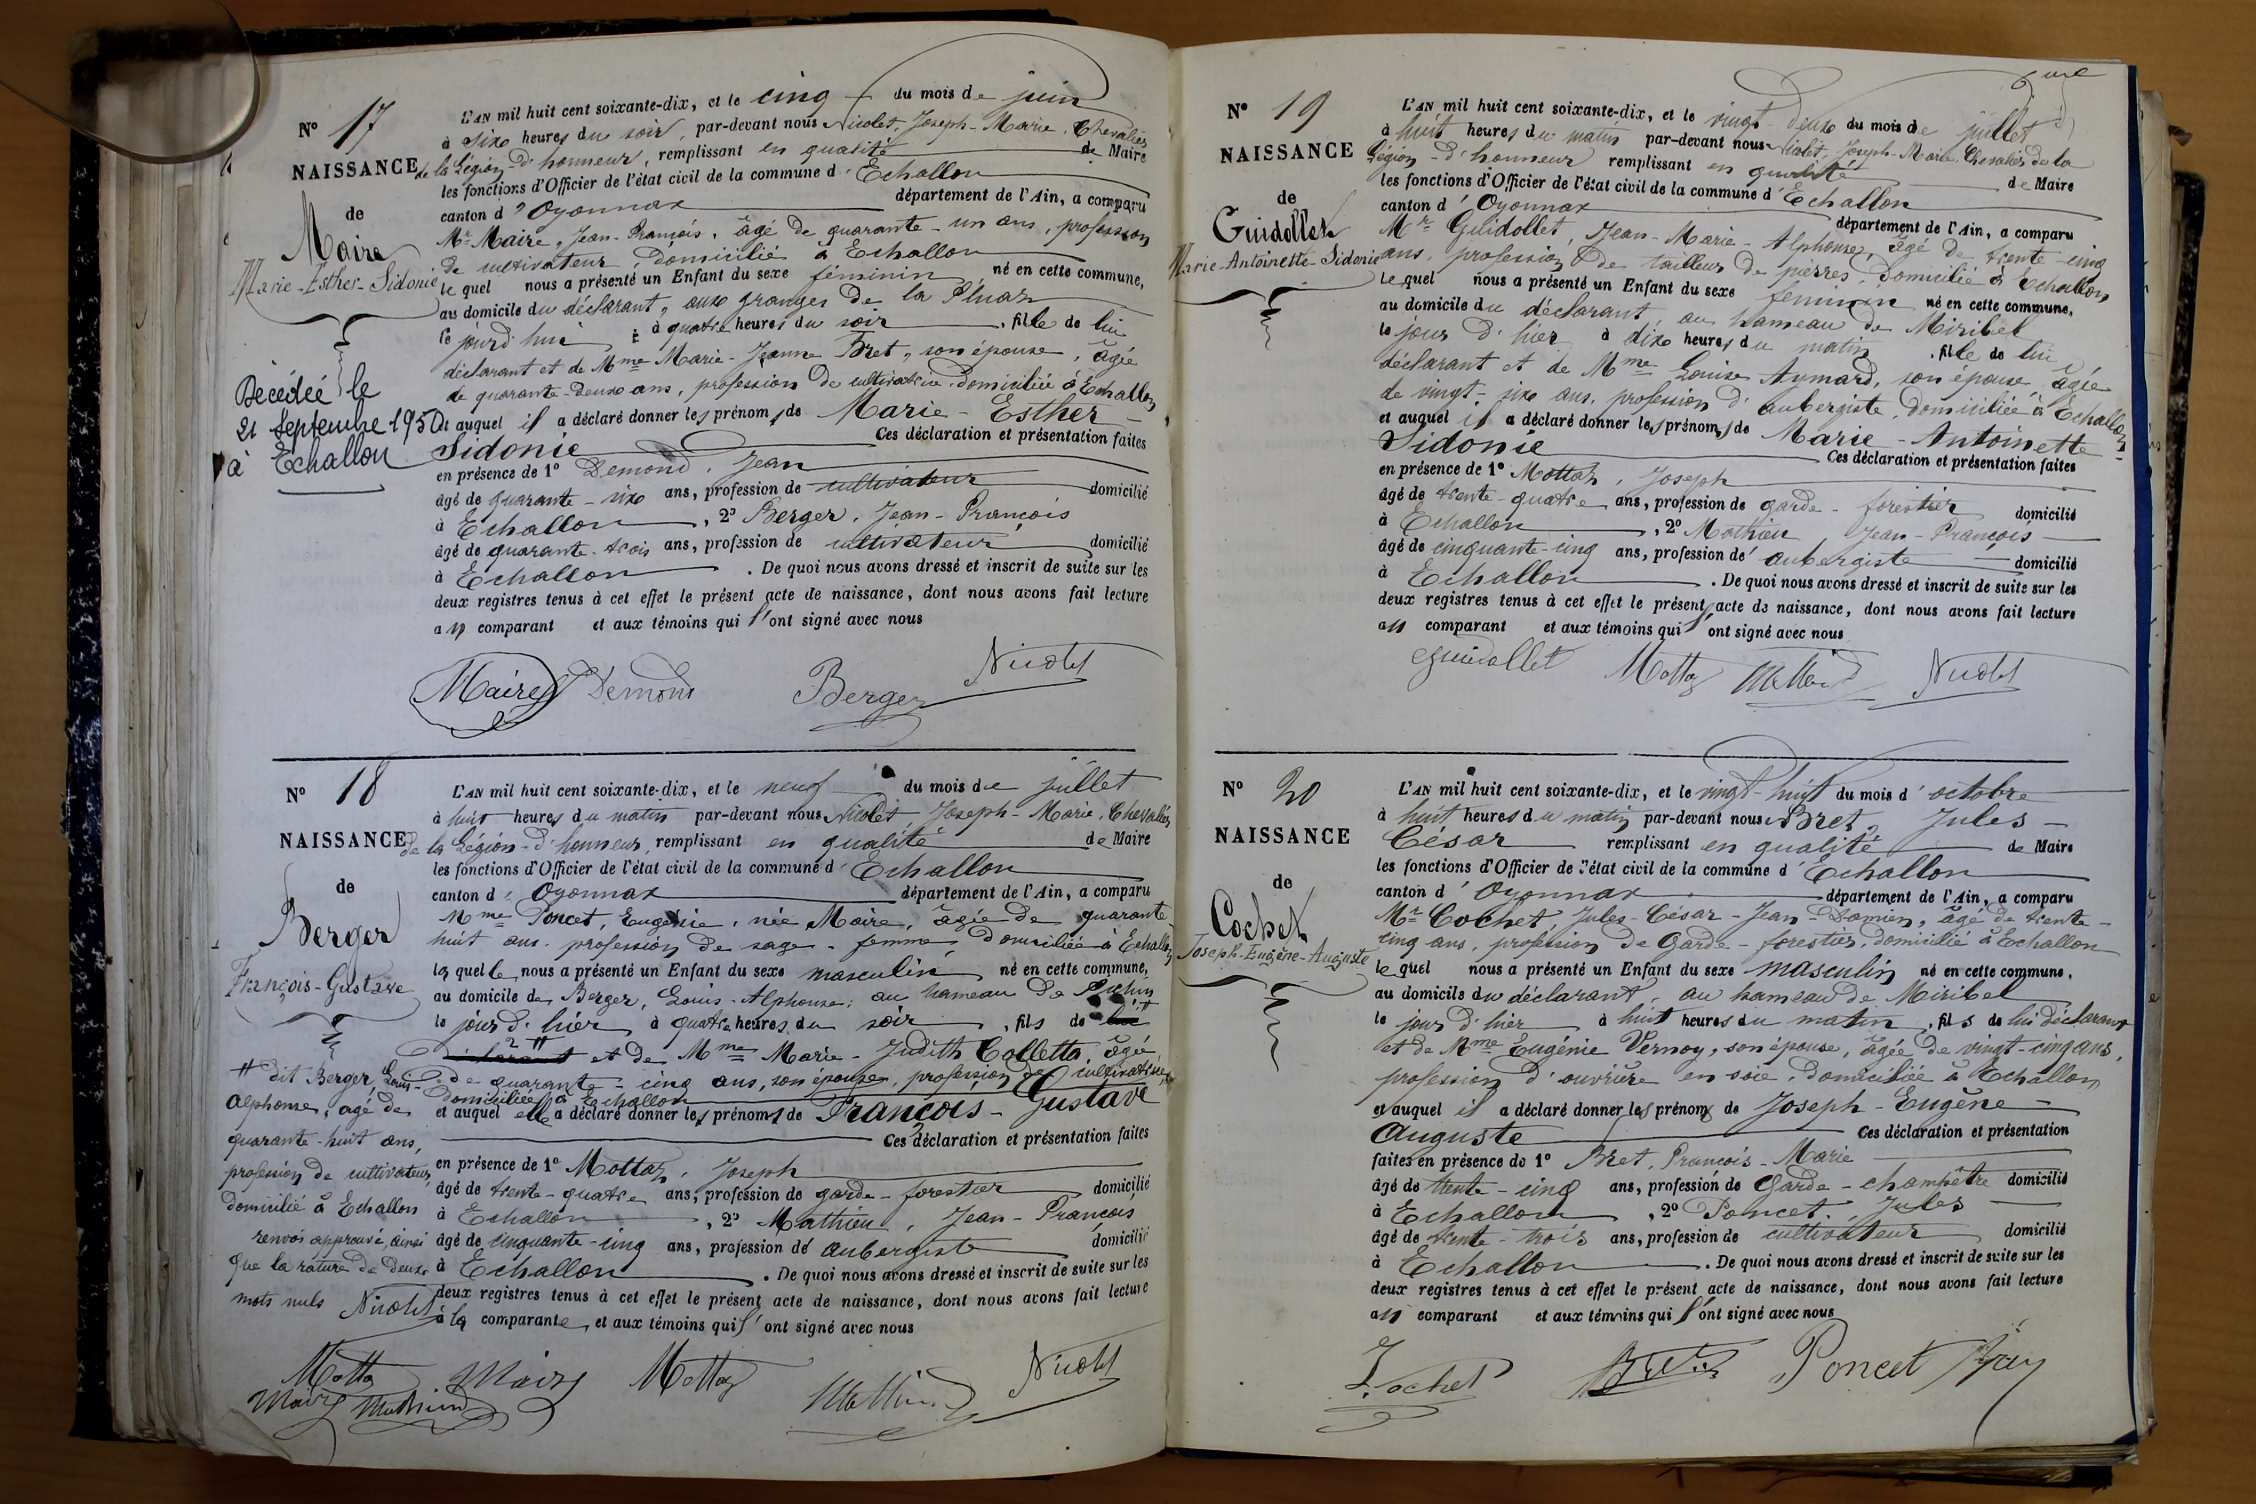 N° 17
NAISSANCE
de
Maire
Marie-Esther-Sidonie
Décédée le
21 Septembre 1950
à Echallon
L'AN mil huit cent soixante-dix, et le cinq du mois de juin
à six heures du soir, par-devant nous Nicolet, Joseph-Marie, Chevalier
de la Légion-d'honneur, remplissant en qualité de Maire
les fonctions d'Officier de l'état civil de la commune d'Echallon
canton d'Oyonnax département de l'Ain, a comparu
Mr Maire, Jean-François, âgé de quarante-un ans, profession
de cultivateur, domicilié à Echallon
lequel nous a présenté un Enfant du sexe féminin né en cette commune,
au domicile du déclarant, aux granges de la
le jourd'hui à quatre heures du soir, fille de lui
déclarant et de Mme Marie-Jeanne Bret, son épouse, âgée
de quarante-deux ans, profession de cultivatrice, domiciliée à Echallon
et auquel il a déclaré donner les prénoms de Marie-Esther-
Sidonie Ces déclaration et présentation faites
en présence de 1° Demond, Jean
âgé de quarante-six ans, profession de cultivateur domicilié
à Echallon, 2° Berger, Jean-François
âgé de quarante-trois ans, profession de cultivateur domicilié
à Echallon. De quoi nous avons dressé et inscrit de suite sur les
deux registres tenus à cet effet le présent acte de naissance, dont nous avons fait lecture
au comparant et aux témoins qui l'ont signé avec nous
Maire Demond Berger Nicolet
N° 18
NAISSANCE
de
Berger
François-Gustave
# dit Berger, Louis-
Alphonse, âgé de
quarante-huit ans,
profession de cultivateur,
domicilié à Echallon
renvoi approuvé, ainsi
que la rature de deux
mots nuls Nicolet
L'AN mil huit cent soixante-dix, et le neuf du mois de juillet
à huit heures du matin par-devant nous Nicolet, Joseph-Marie, Chevalier
de la Légion-d'honneur, remplissant en qualité de Maire
les fonctions d'Officier de l'état civil de la commune d'Echallon
canton d'Oyonnax département de l'Ain, a comparu
Mme Poncet, Eugénie, née Maire, âgée de quarante
huit ans, profession de sage-femme, domiciliée à Echallon
laquelle nous a présenté un Enfant du sexe masculin né en cette commune,
au domicile de Berger, Louis-Alphonse, au hameau de
le jour d'hier à quatre heures du soir, fils de lui
déclarant # et de Mme Marie-Judith Colletta, âgée
de quarante-cinq ans, son épouse, profession de cultivatrice,
domiciliée à Echallon
et auquel elle a déclaré donner les prénoms de François-Gustave
Ces déclaration et présentation faites
en présence de 1° Mottaz, Joseph
âgé de trente-quatre ans, profession de garde-forestier domicilié
à Echallon, 2° Mathieu, Jean-François
âgé de cinquante-cinq ans, profession d'aubergiste domicilié
à Echallon. De quoi nous avons dressé et inscrit de suite sur les
deux registres tenus à cet effet le présent acte de naissance, dont nous avons fait lecture
à la comparante, et aux témoins qui l'ont signé avec nous
Mottaz Maire Mottaz Mathieu Nicolet
Maire Mathieu
N° 19
NAISSANCE
de
Guidollet
Marie-Antoinette-Sidonie
L'AN mil huit cent soixante-dix, et le vingt-deux du mois de juillet
à huit heures du matin par-devant nous Nicolet, Joseph-Marie, Chevalier de la
Légion-d'honneur remplissant en qualité de Maire
les fonctions d'Officier de l'état civil de la commune d'Echallon
canton d'Oyonnax département de l'Ain, a comparu
Mr Guidollet, Jean-Marie-Alphonse, âgé de trente-cinq
ans, profession de tailleur de pierres, domicilié à Echallon
lequel nous a présenté un Enfant du sexe féminin né en cette commune,
au domicile du déclarant au hameau de Miribel
le jour d'hier à dix heures du matin, fille de lui
déclarant et de Mme Louise Aymard, son épouse, âgée
de vingt-six ans, profession d'aubergiste, domiciliée à Echallon
et auquel il a déclaré donner les prénoms de Marie-Antoinette-
Sidonie Ces déclaration et présentation faites
en présence de 1° Mottaz, Joseph
âgé de trente-quatre ans, profession de garde-forestier domicilié
à Echallon, 2° Mathieu Jean-François
âgé de cinquante-cinq ans, profession d'aubergiste domicilié
à Echallon. De quoi nous avons dressé et inscrit de suite sur les
deux registres tenus à cet effet le présent acte de naissance, dont nous avons fait lecture
au comparant et aux témoins qui l'ont signé avec nous
Guidollet Mottaz Mathieu Nicolet
N° 20
NAISSANCE
de
Cochet
Joseph-Eugène-Auguste
L'AN mil huit cent soixante-dix, et le vingt-huit du mois d'octobre
à huit heures du matin par-devant nous Bret, Jules-
César remplissant en qualité de Maire
les fonctions d'Officier de l'état civil de la commune d'Echallon
canton d'Oyonnax département de l'Ain, a comparu
Mr Cochet Jules-César-Jean-Damien, âgé de trente-
cinq ans, profession de Garde-forestier, domicilié à Echallon
lequel nous a présenté un Enfant du sexe masculin né en cette commune,
au domicile du déclarant, au hameau de Miribel
le jour d'hier à huit heures du matin, fils de lui déclarant
et de Mme Eugénie Vernoy, son épouse, âgée de vingt-cinq ans,
profession d'ouvrière en soie, domiciliée à Echallon
et auquel il a déclaré donner les prénoms de Joseph-Eugène-
Auguste Ces déclaration et présentation
faites en présence de 1° Bret, François-Marie
âgé de trente-cinq ans, profession de Garde-champêtre domicilié
à Echallon, 2° Poncet, Jules
âgé de trente-trois ans, profession de cultivateur domicilié
à Echallon. De quoi nous avons dressé et inscrit de suite sur les
deux registres tenus à cet effet le présent acte de naissance, dont nous avons fait lecture
au comparant et aux témoins qui l'ont signé avec nous
J. Cochet Bret Poncet